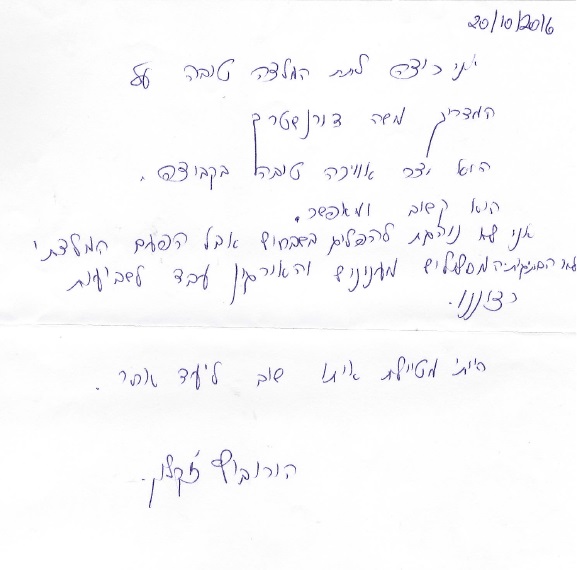 20/10/2016
אני רוצה לתת המלצה טובה על
המדריך משה דורנשטרך
הוא יצר אווירה טובה בקבוצה.
הוא קשוב ומאפשר.
אני לא נוהגת להפליג בשבחים אבל הפעם המלצתי
המסלולים מעניינים והארגון עבד לשביעות
רצוננו.
הייתי מטיילת איתו שוב ליעד אחר.
הורוביץ ז'קלין.